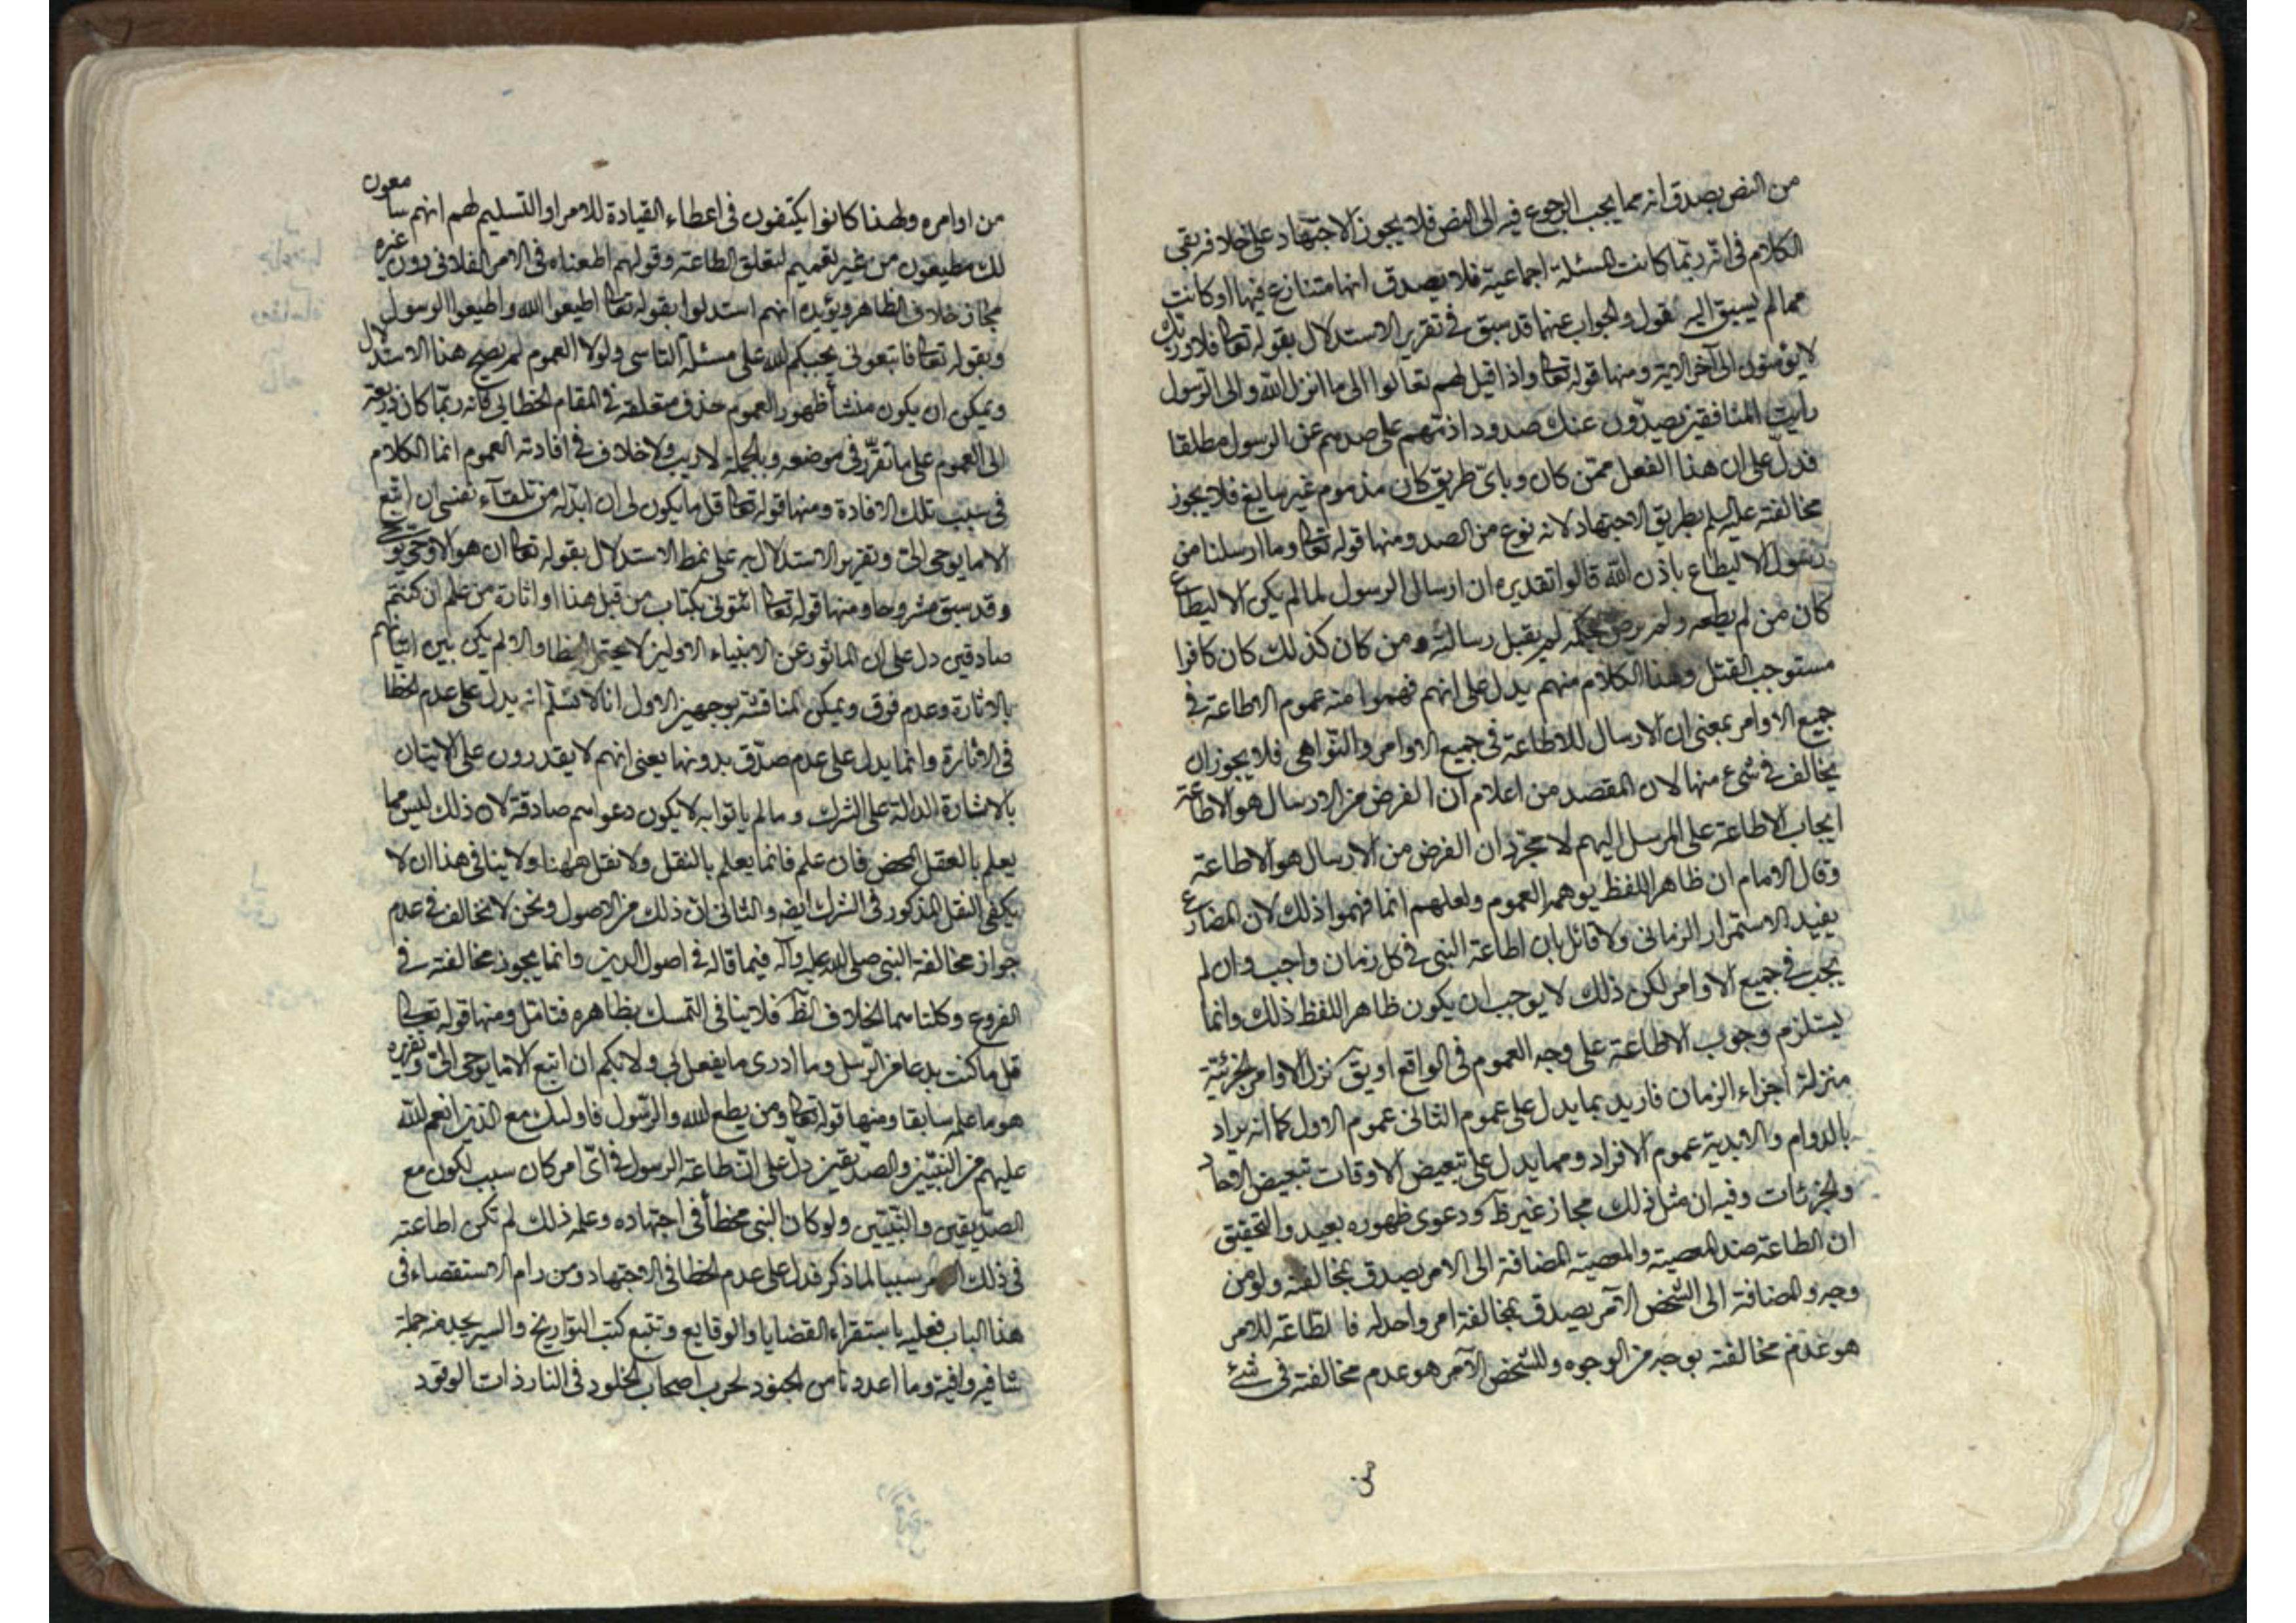 من النص بصدق انه مما يجب الرجوع فيه الى النص فلا يجوز الاجتهاد على خلافه بقى
الكلام فى انه ربّما كانت المسئلة اجماعية فلا يصدق انها متنازع فيها او كانت
مما لم يسبق اليه نقول والجواب عنهما قد سبق فى تقرير الاستدلال بقوله تعالى فلا وربك
لا يؤمنون الى آخر الاية ومنها قوله تعالى واذا قيل لهم تعالوا الى ما انزل الله والى الرسول
رأيت المنافقين يصدّون عنك صدودا ذمّهم على صدهم عن الرسول مطلقا
فدلّ على ان هذا الفعل ممّن كان وباىّ طريق كان مذموم غير سايغ فلا يجوز
مخالفته عليه السلم بطريق الاجتهاد لانه نوع من الصد ومنها قوله تعالى وما ارسلنا من
رسول الا ليطاع باذن الله قالوا تقديره ان ارسال الرسول لما لم يكن الا ليطاع
كان من لم يطعه ولم يرض بحكمه لم يقبل رسالته ومن كان كذلك كان كافرا
مستوجب القتل وهذا الكلام منهم يدل على انهم فهموا منه عموم الاطاعة فى
جميع الاوامر بمعنى ان الارسال للاطاعة فى جميع الاوامر والنّواهى فلا يجوز ان
يخالف فى شىء منها لان المقصد من اعلام ان الغرض من الارسال هو الاطاعة
ايجاب الاطاعة على المرسل اليهم لا مجرّد ان الغرض من الارسال هو الاطاعة
وقال الامام ان ظاهر اللفظ يوهم العموم ولعلهم انما فهموا ذلك لان المضارع
يفيد الاستمرار الزمانى ولا قائل بان اطاعة النبى فى كل زمان واجب وان لم
يجب فى جميع الاوامر لكن ذلك لا يوجب ان يكون ظاهر اللفظ ذلك وانما
يستلزم وجوب الاطاعة على وجه العموم فى الواقع او يق نزل الاوامر الجزئية
منزلة اجزاء الزمان فاريد بما يدل على عموم الثانى عموم الاول كما انه يراد
بالدوام والابدية عموم الافراد ومما يدل على تبعيض الاوقات تبعيض الاحاد
والجزئيات وفيه ان مثل ذلك مجاز غير ظ ودعوى ظهوره بعيد والتحقيق
ان الطاعة ضد المعصية والمعصية المضافة الى الامر يصدق بمخالفته ولو من
وجه والمضافة الى الشخص الآمر يصدق بمخالفة امر واحد له فالطاعة للامر
هو عدم مخالفته بوجه من الوجوه وللشخص الآمر هو عدم مخالفته فى شئ
من
من اوامره ولهذا كانوا يكتفون فى اعطاء القيادة للامر او التسليم لهم انهم سامعون
لك مطيعون من غير تعميم لمتعلق الطاعة وقولهم اطعناه فى الامر الفلانى دون غيره
مجاز خلاف الظاهر ويؤيده انهم استدلوا بقوله تعالى اطيعوا الله واطيعوا الرسول
وبقوله تعالى فاتبعونى يحببكم الله على مسئلة التاسى ولولا العموم لم يصح هذا الاستدلال
ويمكن ان يكون منشأ ظهور العموم حذف متعلقه فى المقام الخطابى فانه ربّما كان ذريعة
الى العموم على ما تقرّر فى موضعه وبالجملة لا ريب ولا خلاف فى افادته العموم انما الكلام
فى سبب تلك الافادة ومنها قوله تعالى قل ما يكون لى ان ابدّله من تلقآء نفسى ان اتبع
الا ما يوحى الىّ وتقرير الاستدلال به على نمط الاستدلال بقوله تعالى ان هو الا وحى يوحى
وقد سبق مشروحا ومنها قوله تعالى ائتونى بكتاب من قبل هذا او اثارة من علم ان كنتم
صادقين دل على ان الماثور عن الانبياء الاولين لا يحتمل الخطا والا لم يكن بين اتيانهم
بالاثارة وعدمه فرق ويمكن المناقشة بوجهين الاول انا لا نسلّم انه يدل على عدم الخطا
فى الاثارة وانما يدل على عدم صدّق بدونها يعنى انهم لا يقدرون على الاتيان
بالاشارة الدالة على الشرك وما لم ياتوا به لا يكون دعواهم صادقة لان ذلك ليس مما
يعلم بالعقل المحض فان علم فانما يعلم بالنقل ولا نقل ههنا ولا ينافى هذا ان لا
يكفى النقل المذكور فى الشرك ايضه والثانى ان ذلك من الاصول ونحن لا نخالف فى عدم
جواز مخالفة النبى صلى الله عليه وآله فيما قاله فى اصول الدين وانما يجوز مخالفته فى
الفروع وكلتاهما الخلاف الظ فلا ينافى التمسك بظاهره فتامّل ومنها قوله تعالى
قل ما كنت بدعا من الرّسل وما ادرى ما يفعل بى ولا بكم ان اتبع الا ما يوحى الىّ وتقريره
هو ما علمه سابقا ومنها قوله تعالى ومن يطع الله والرسول فاولئك مع الذين انعم الله
عليهم من النبيّين والصدّيقين دلّ على انّ طاعة الرسول فى اىّ امر كان سبب لكون مع
الصدّيقين والنّبيّين ولو كان النبى مخطأ فى اجتهاده وعلم ذلك لم تكن اطاعته
فى ذلك الامر سببا لما ذكر فدل على عدم الخطا فى الاجتهاد ومن رام الاستقصاء فى
هذا الباب فعليه باستقراء القضايا والوقايع وتتبع كتب التواريخ والسير يجد منه جملة
شافيه وافية وما اعددنا من الجنود لحرب اصحاب الخلود فى النار ذات الوقود